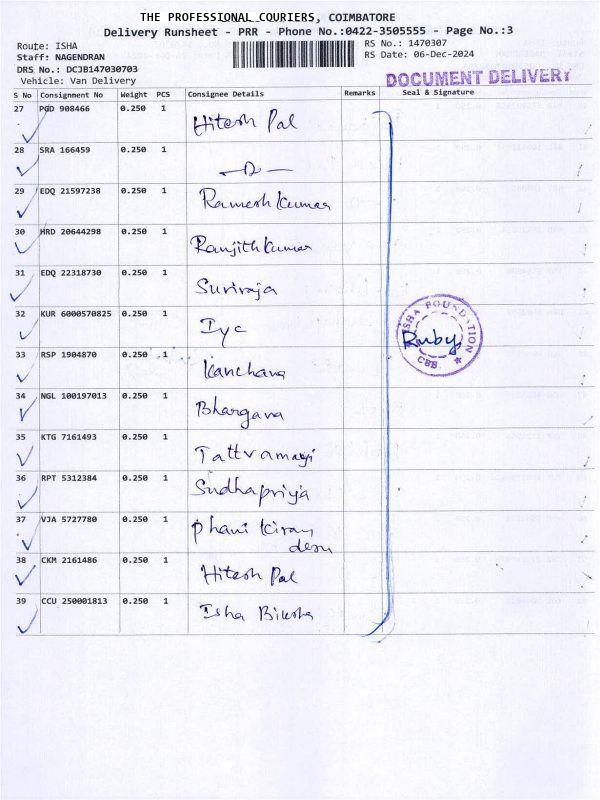 THE PROFESSIONAL COURIERS, COIMBATORE
Delivery Runsheet - PRR - Phone No.:0422-3505555 - Page No.:3
Route: ISHA
Staff: NAGENDRAN
DRS No.: DCJB147030703
Vehicle: Van Delivery
RS No.: 1470307
RS Date: 06-Dec-2024
DOCUMENT DELIVERY
S No Consignment No Weight PCS Consignee Details Remarks Seal & Signature
27 PGD 908466 0.250 1 Hitesh Pal
28 SRA 166459 0.250 1 —D—
29 EDQ 21597238 0.250 1 Ramesh Kumar
30 HRD 20644298 0.250 1 Ranjith Kumar
31 EDQ 22318730 0.250 1 Suriraja
32 KUR 6000570825 0.250 1 Iyc
33 RSP 1904870 0.250 1 Kanchana
34 NGL 100197013 0.250 1 Bhargava
35 KTG 7161493 0.250 1 Tattvamayi
36 RPT 5312384 0.250 1 Sudhapriya
37 VJA 5727780 0.250 1 phani Kiran
desu
38 CKM 2161486 0.250 1 Hitesh Pal
39 CCU 250001813 0.250 1 Isha Biksha
ISHA FOUNDATION
Ruby
CBB